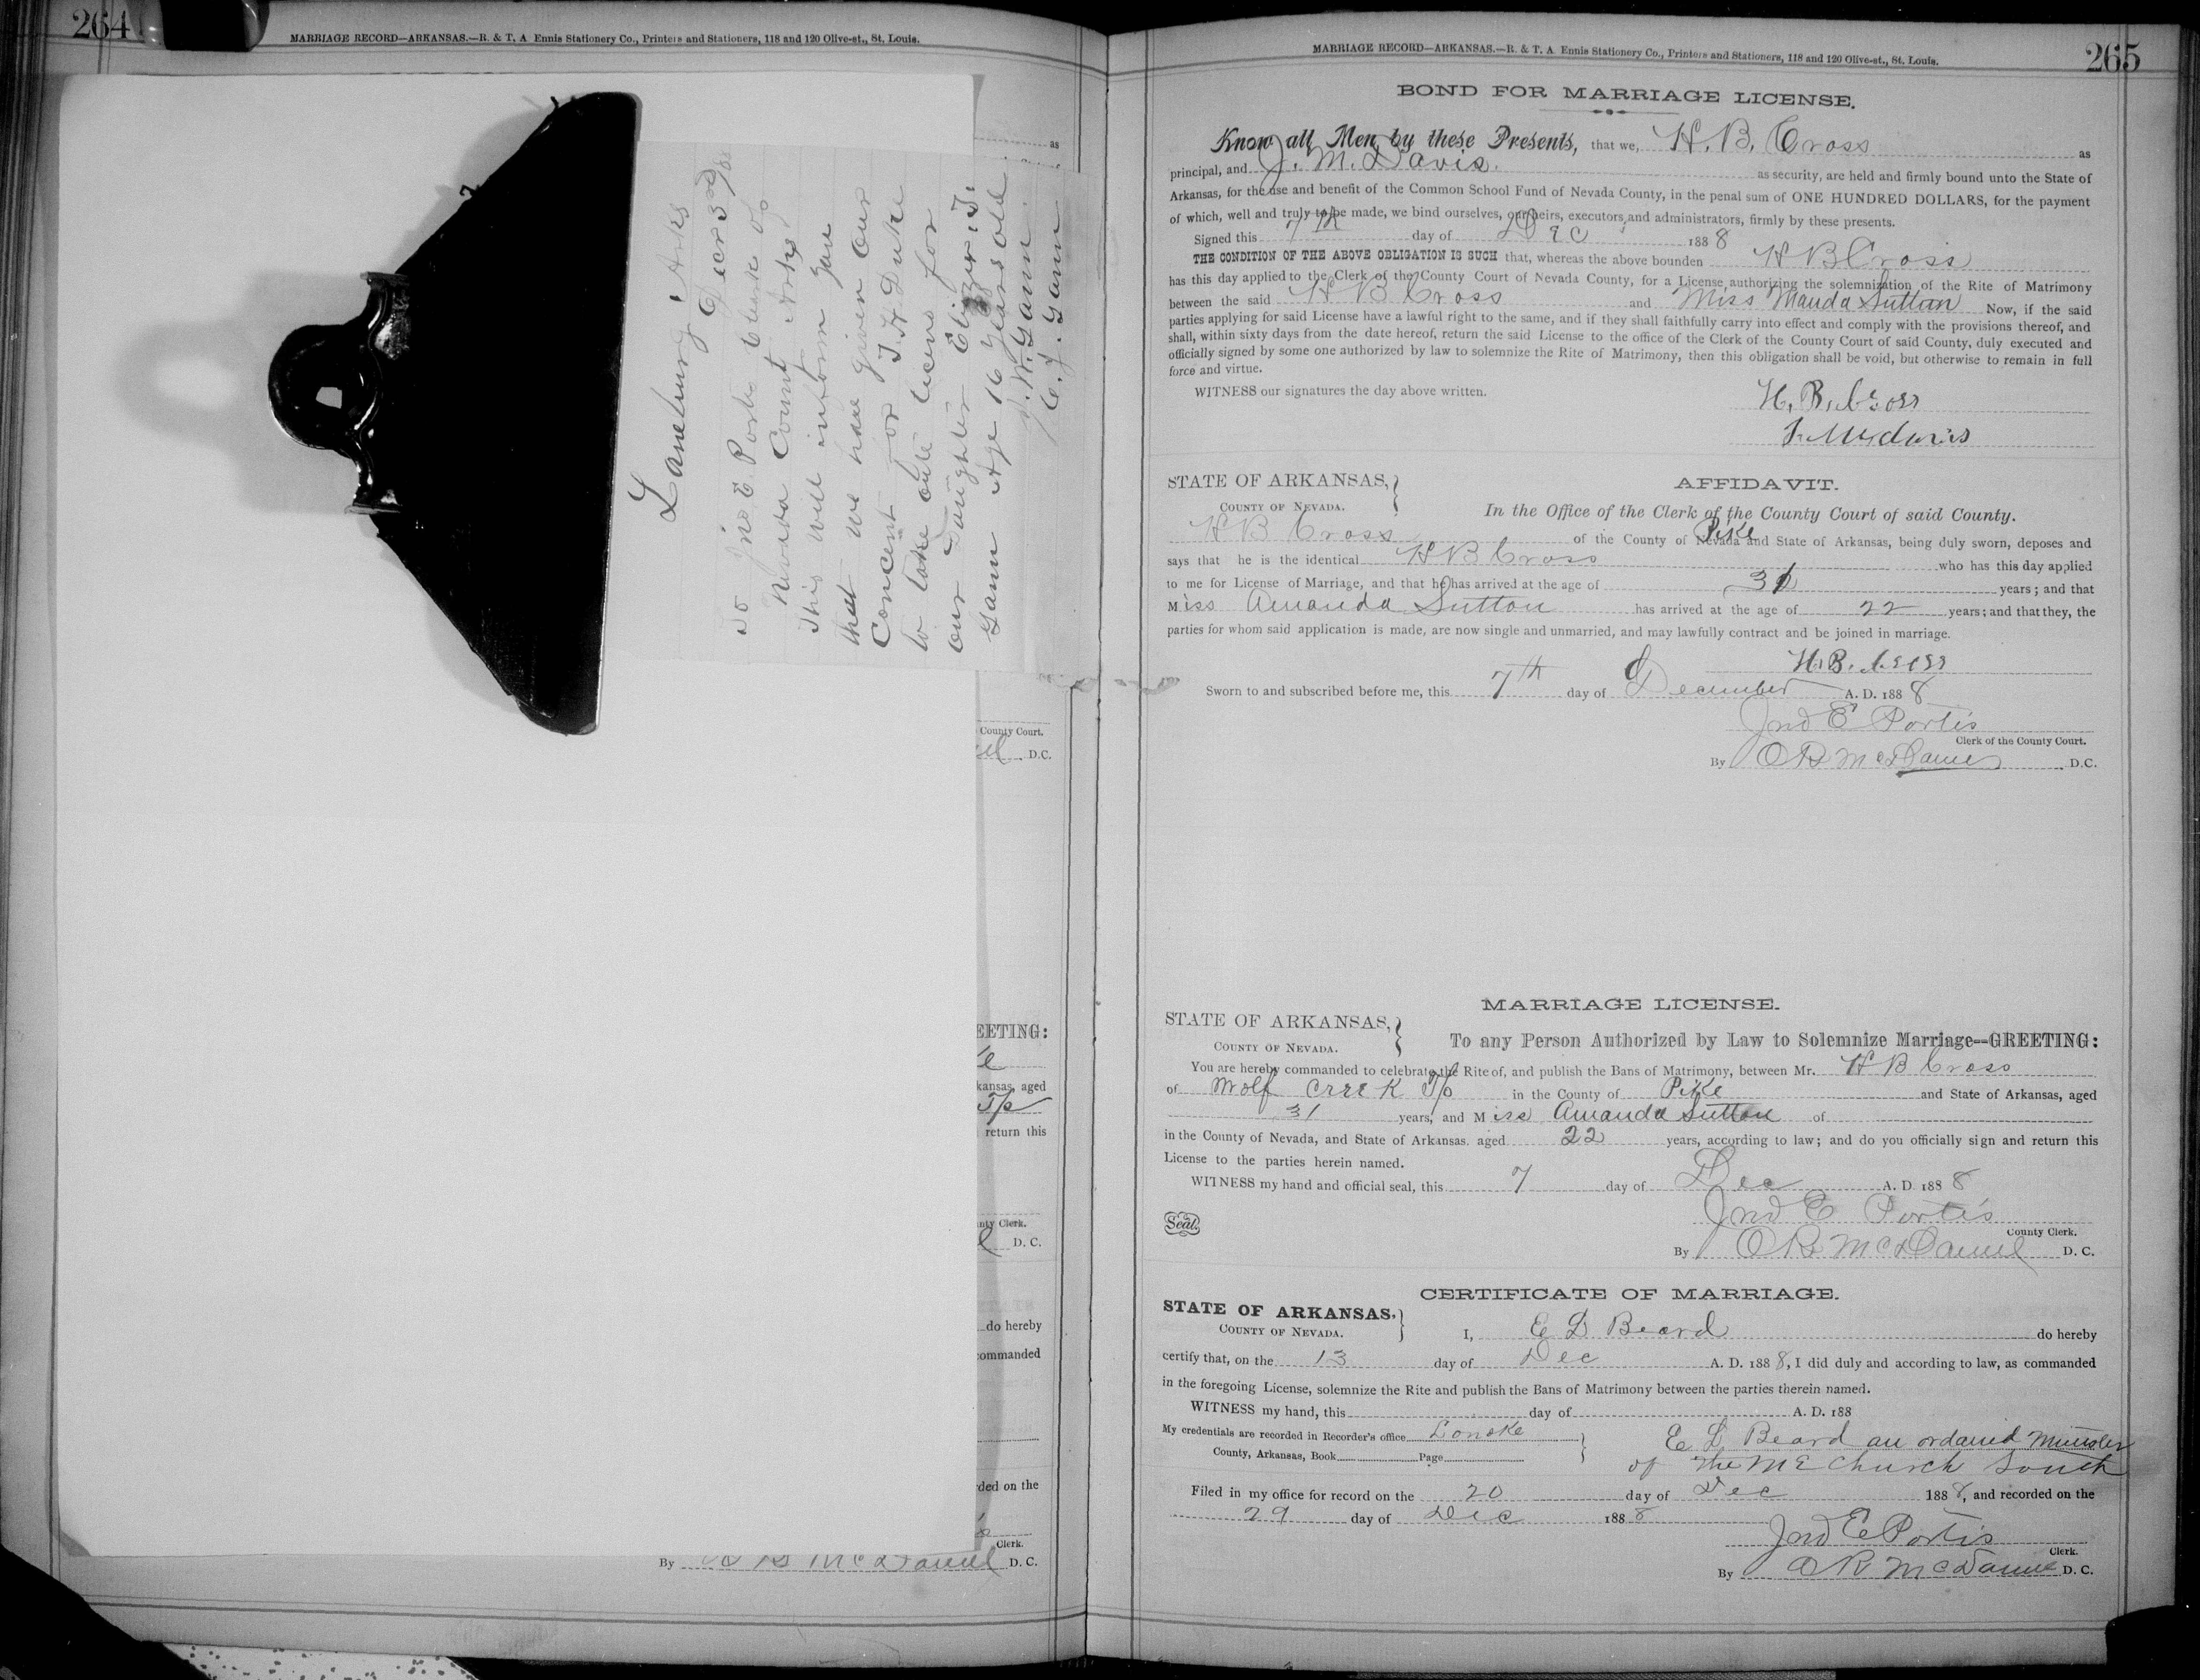 264
MARRIAGE RECORD—ARKANSAS.—R. & T. A. Ennis Stationery Co., Printers and Stationers, 118 and 120 Olive-st., St. Louis.
as
Laneburg Arks
Decr 3rd
To Jno E Portis Clerk of
Nevada County Arks
This will inform you
that we have given our
Concent for J. H Duke
to take oute licens for
our Daughter
Gann Age 16 years old
J. W. Gann
C. J. Gann
County Court.
D.C.
EETING:
kansas, aged
Tp
return this
nty Clerk.
D. C.
do hereby
ommanded
ded on the
Clerk.
By O R McDaniel D. C.
MARRIAGE RECORD—ARKANSAS.—R. & T. A. Ennis Stationery Co., Printers and Stationers, 118 and 120 Olive-st., St. Louis.
265
BOND FOR MARRIAGE LICENSE.
Know all Men by these Presents, that we, H. B. Cross as
principal, and J. M. Davis. as security, are held and firmly bound unto the State of
Arkansas, for the use and benefit of the Common School Fund of Nevada County, in the penal sum of ONE HUNDRED DOLLARS, for the payment
of which, well and truly to be made, we bind ourselves, our heirs, executors and administrators, firmly by these presents.
Signed this 7th day of Dec 1888
THE CONDITION OF THE ABOVE OBLIGATION IS SUCH that, whereas the above bounden H B Cross
has this day applied to the Clerk of the County Court of Nevada County, for a License authorizing the solemnization of the Rite of Matrimony
between the said H B Cross and Miss Manda Sutton Now, if the said
parties applying for said License have a lawful right to the same, and if they shall faithfully carry into effect and comply with the provisions thereof, and
shall, within sixty days from the date hereof, return the said License to the office of the Clerk of the County Court of said County, duly executed and
officially signed by some one authorized by law to solemnize the Rite of Matrimony, then this obligation shall be void, but otherwise to remain in full
force and virtue.
WITNESS our signatures the day above written.
H. B. Cross
J. M. Davis
STATE OF ARKANSAS,
COUNTY OF NEVADA.
AFFIDAVIT.
In the Office of the Clerk of the County Court of said County.
H B Cross of the County of Nevada Pike and State of Arkansas, being duly sworn, deposes and
says that he is the identical H B Cross who has this day applied
to me for License of Marriage, and that he has arrived at the age of 31 years; and that
Miss Amanda Sutton has arrived at the age of 22 years; and that they, the
parties for whom said application is made, are now single and unmarried, and may lawfully contract and be joined in marriage.
H. B. Cross
Sworn to and subscribed before me, this 7th day of December A. D. 1888
Jno E Portis
Clerk of the County Court.
By O R McDaniel D.C.
MARRIAGE LICENSE.
STATE OF ARKANSAS,
COUNTY OF NEVADA.
To any Person Authorized by Law to Solemnize Marriage—GREETING:
You are hereby commanded to celebrate the Rite of, and publish the Bans of Matrimony, between Mr. H B Cross
of Wolf Creek Tp in the County of Pike and State of Arkansas, aged
31 years, and Miss Amanda Sutton of
in the County of Nevada, and State of Arkansas. aged 22 years, according to law; and do you officially sign and return this
License to the parties herein named.
WITNESS my hand and official seal, this 7 day of Dec A. D. 1888
Seal.
Jno E Portis
County Clerk.
By O R McDaniel D. C.
CERTIFICATE OF MARRIAGE.
STATE OF ARKANSAS,
COUNTY OF NEVADA.
I, E D Beard do hereby
certify that, on the 13 day of Dec A. D. 1888, I did duly and according to law, as commanded
in the foregoing License, solemnize the Rite and publish the Bans of Matrimony between the parties therein named.
WITNESS my hand, this day of A. D. 188
My credentials are recorded in Recorder's office Lonoke
County, Arkansas, Book Page
E L Beard an ordained Minister
of the M E Church South
Filed in my office for record on the 20 day of Dec 1888, and recorded on the
29 day of Dec 1888
Jno E Portis
Clerk.
By O R McDaniel D. C.